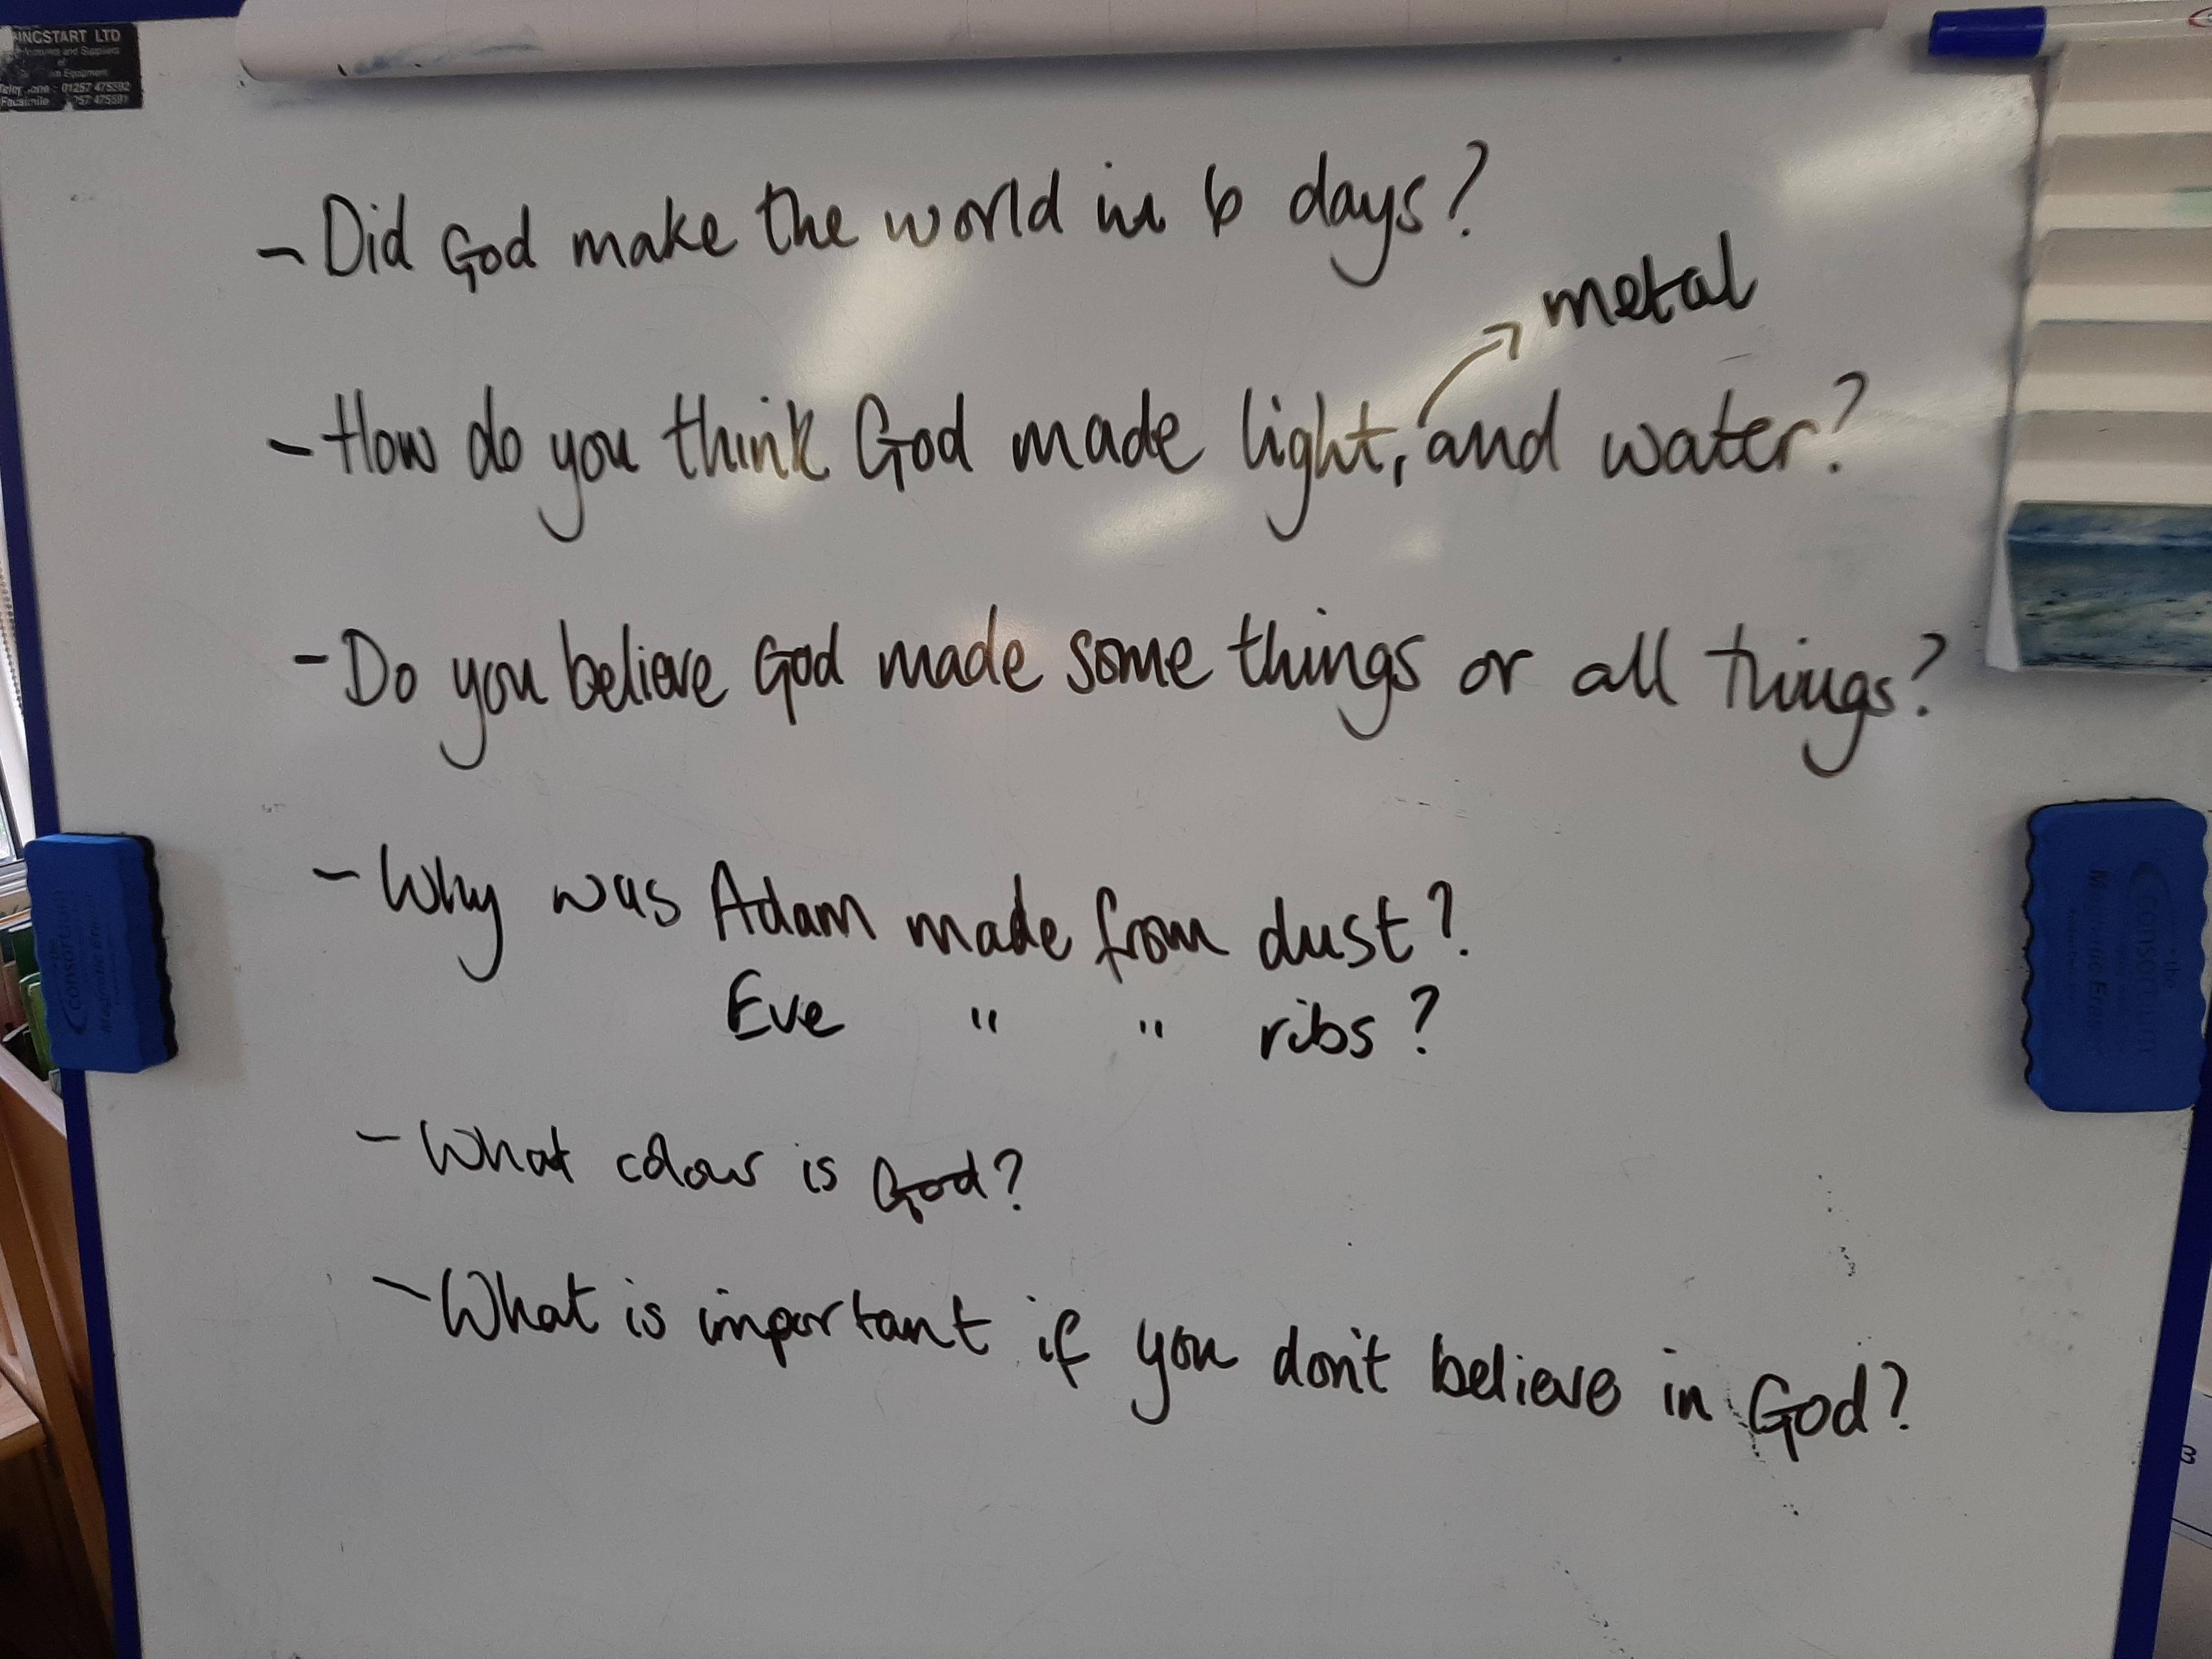 INGSTART LTD
and Suppliers
of
Equipment
: 01257 475592
Facsimile 257 475591
- Did God make the world in 6 days?
metal
- How do you think God made light, and water?
- Do you believe God made some things or all things?
- Why was Adam made from dust?
Eve " " ribs?
- What colour is God?
- What is important if you don't believe in God?
consortium